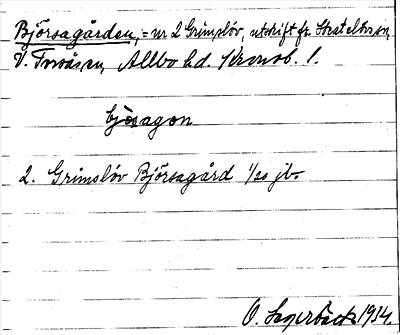 Björsagården, = nr 2 Grimslöv, utskift fr. Strateltorp sn,
V. Torsås sn, Allbo hd. Kronob. l.
bjö̀sagon
2. Grimslöv Björsagård 1/20 jb.
O. Lagerbäck 1934.